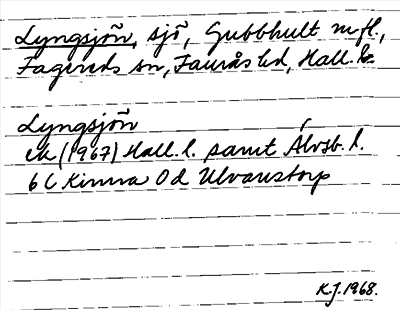 Lyngsjön, sjö, Gubbhult m.fl.,
Fagereds sn, Faurås hd, Hall. l.
Lyngsjön
ek (1967) Hall. l. samt Älvsb. l.
6C Kinna Od Ulvanstorp
K.J. 1968.